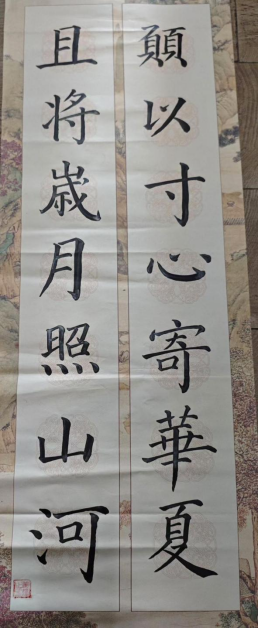 願以寸心寄華夏
且将歲月照山河